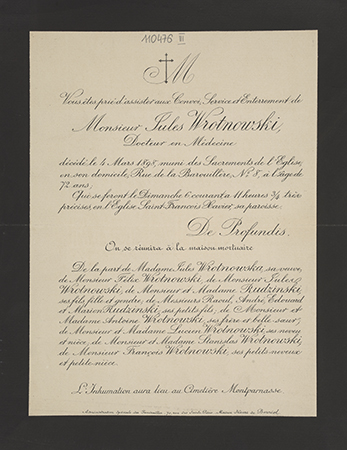 110476 III
M
Vous êtes prié d'assister aux Convoi, Service et Enterrement de
Monsieur Jules Wrotnowski,
Docteur en Médecine
décédé le 4 Mars 1898, muni des Sacrements de l'Eglise,
en son domicile, Rue de la Barouillère, N° 8, à l'âge de
72 ans,
Qui se feront le Dimanche 6 courant, à 11 heures 3/4 très
précises, en l'Eglise Saint-François Xavier, sa paroisse.
De Profundis.
On se réunira à la maison mortuaire
De la part de Madame Jules Wrotnowska, sa veuve,
de Monsieur Félix Wrotnowski, de Monsieur Jules
Wrotnowski, de Monsieur et Madame Rudzinski,
ses fils, fille et gendre, de Messieurs Raoul, André, Edouard
et Marion Rudzinski, ses petits-fils, de Monsieur et
Madame Antoine Wrotnowski, ses frère et belle-sœur,
de Monsieur et Madame Lucien Wrotnowski, ses neveu
et nièce, de Monsieur et Madame Stanislas Wrotnowski,
de Monsieur François Wrotnowski, ses petits-neveux
et petite-nièce.
L'Inhumation aura lieu au Cimetière Montparnasse.